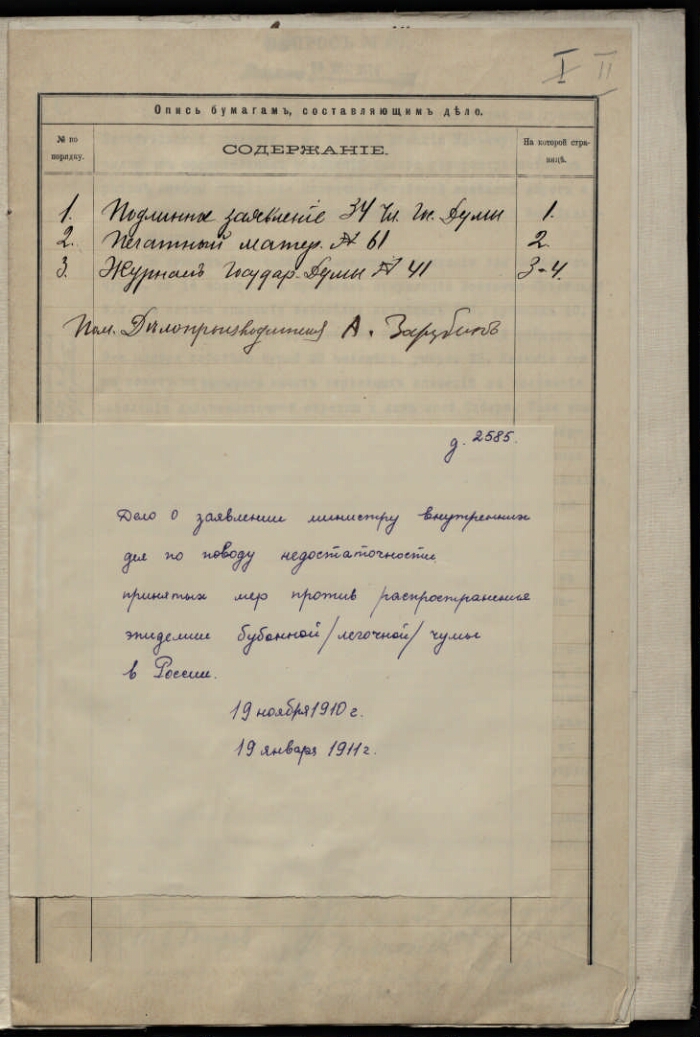 I II
Опись бумагамъ, составляющимъ дѣло.
№ по порядку.
СОДЕРЖАНІЕ.
На которой стра-
ницѣ.
1. Подлинное заявленіе 34 Чл. Гос. Думы 1.
2. Печатный матер. № 61 2.
3. Журналъ Государ. Думы № 41 3-4.
Пом. Дѣлопроизводителя А. Зарубинъ
д. 2585.
Дело о заявлении министру внутренних
дел по поводу недостаточности
принятых мер против распространения
эпидемии бубонной /легочной/ чумы
в России.
19 ноября 1910 г.
19 января 1911 г.